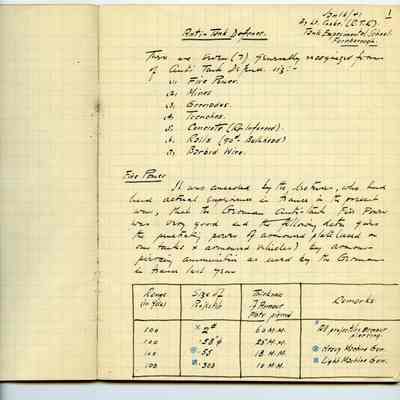 1
Anti-Tank Defence.
By Lt. (R.T.R.)
Tank Experimental School
Farnborough.
There are seven (7) generally recognized forms
of Anti Tank Defence viz:-
1. Fire Power.
2. Mines
3. Grenades.
4. Trenches.
5. Concrete (Reinforced).
6. Rails (
7. Barbed Wire.
Fire Power
It was conceded by the lecturer, who had
had actual experience in France in the present
war, that the German Anti-tank Fire Power
was very good and the following data gives
the penetrating power of armoured plate (used on
our tanks & armoured vehicles) by armour
piercing ammunition as used by the Germans
in France last year
Range (in Yds) Size of Projectile Thickness of Armour Plate pierced Remarks
100 2# 60 M.M. All projectiles armour piercing.
100 M.M.
100 .55 18 M.M. Heavy Machine Gun.
100 .303 10 M.M. Light Machine Gun.